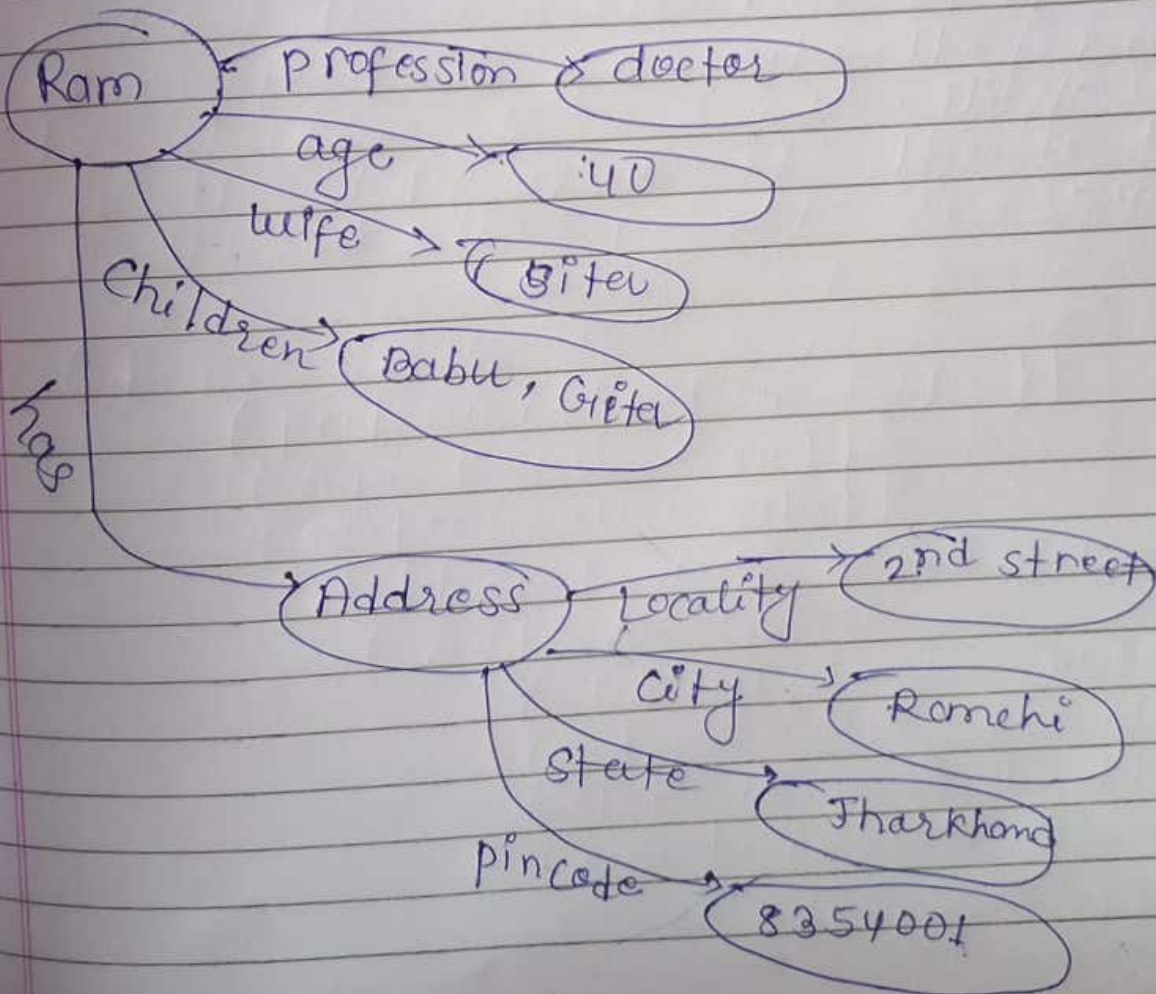 Ram profession doctor
age 40
wife Sita
Children Babu, Gita
has
Address Locality 2nd street
City Ranchi
State Jharkhand
Pincode 8354001